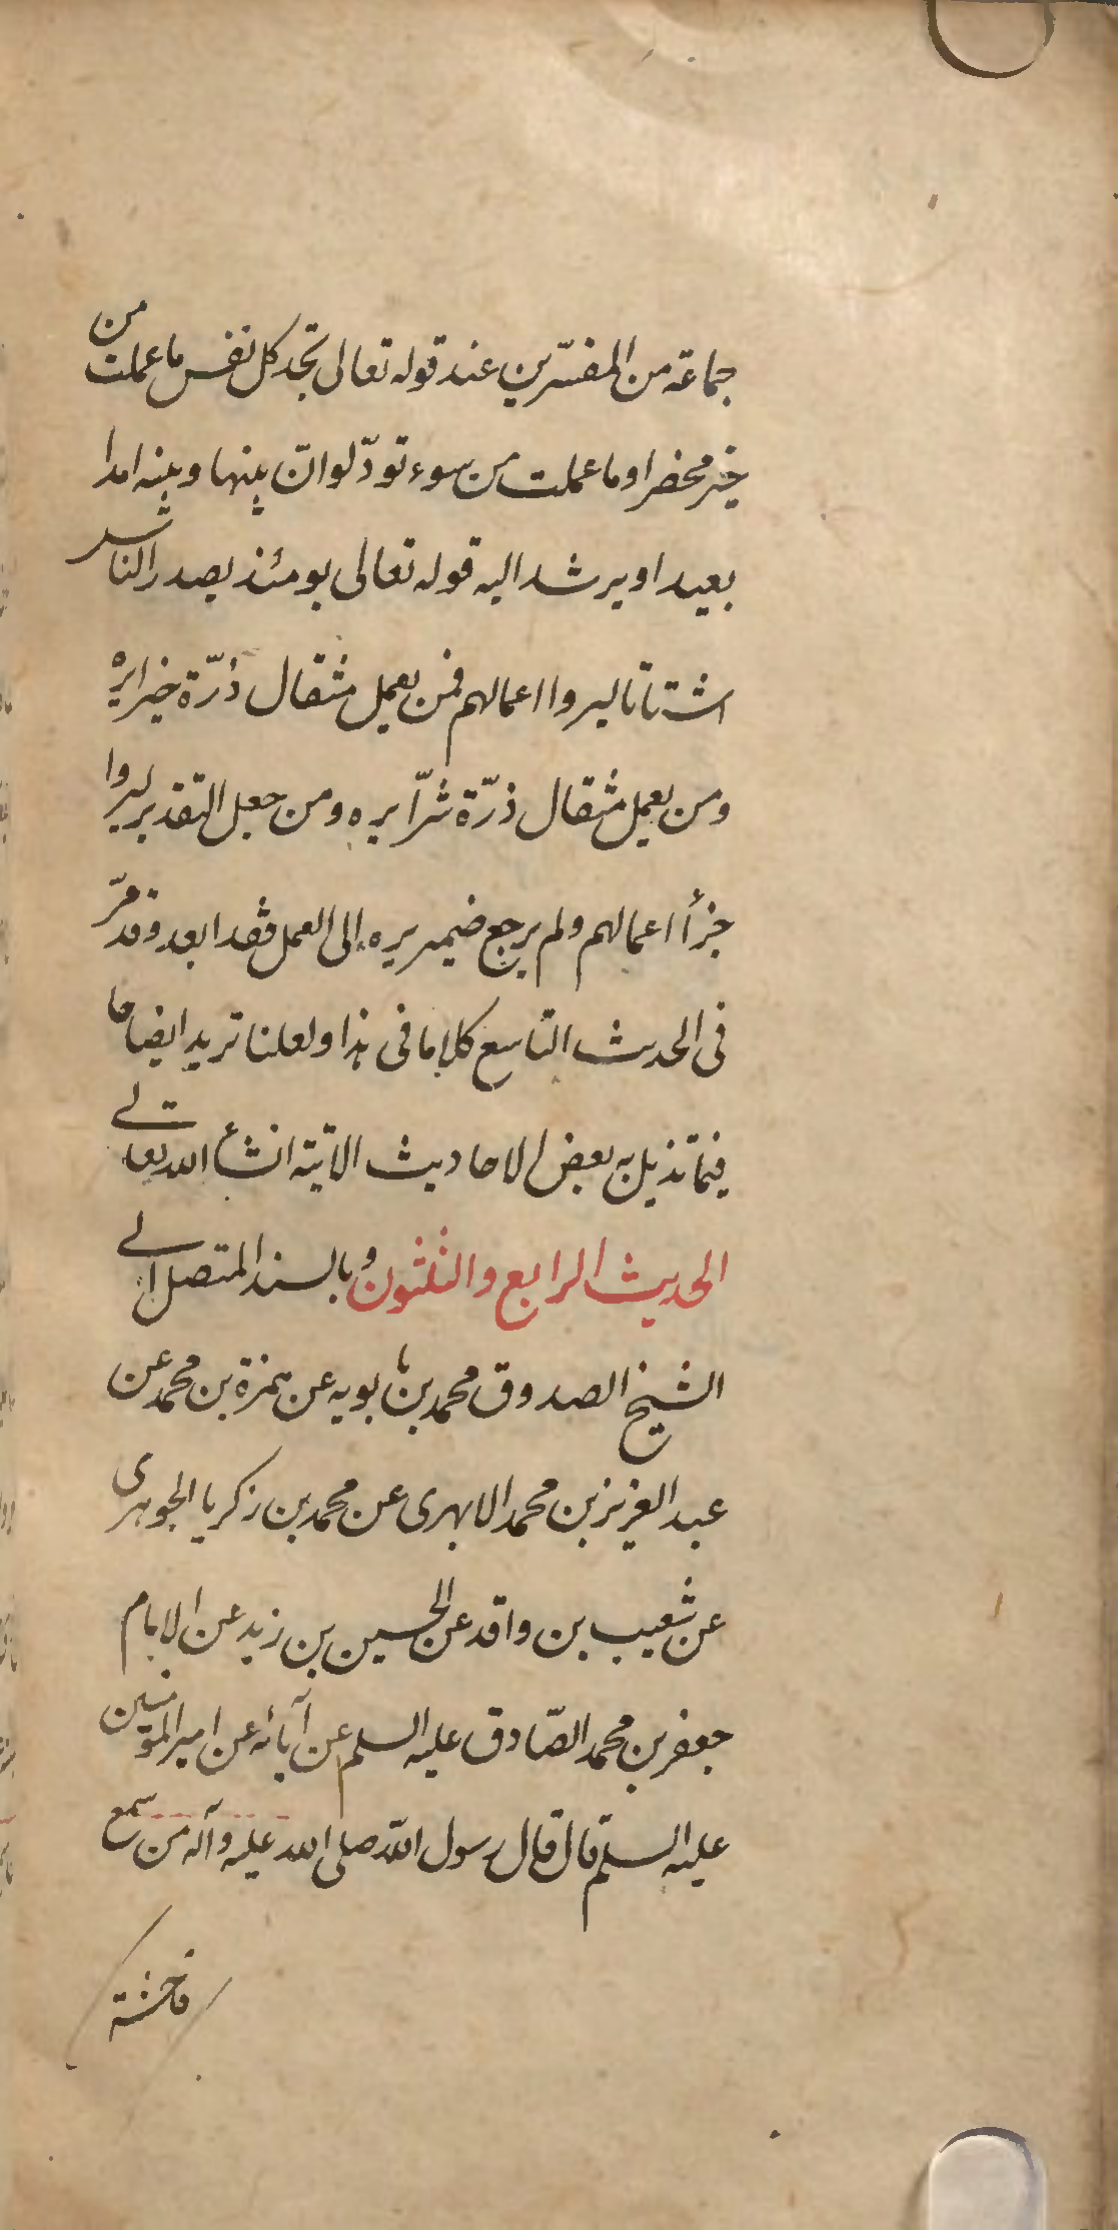 جماعة من المفسّرين عند قوله تعالى تجد كل نفس ما عملت من
خير محضرا وما عملت من سوء تودّ لو انّ بينها وبينه امدا
بعيدا ويرشد اليه قوله تعالى يومئذ يصدر الناس
اشتاتا ليروا اعمالهم فمن يعمل مثقال ذرّة خيرا يره
ومن يعمل مثقال ذرّة شرّا يره ومن جعل التقدير ليروا
جزأ اعمالهم ولم يرجع ضمير يره الى العمل فقد ابعد وقد مرّ
فى الحديث التاسع كلام فى هذا ولعلنا نزيد ايضاحا
فيما نذيل به بعض الاحاديث الاتية انشأ الله تعالى
الحديث الرابع والثلثون وبالسند المتصل الى
الشيخ الصدوق محمد بن بابويه عن حمزة بن محمد عن
عبد العزيز بن محمد الابهرى عن محمد بن زكريا الجوهرى
عن شعيب بن واقد عن الحسين بن زيد عن الامام
جعفر بن محمد الصّادق عليه السلم عن آبائه عن امير المؤمنين
عليه السلم قال قال رسول اللّه صلى الله عليه وآله من سمع
فاحشة